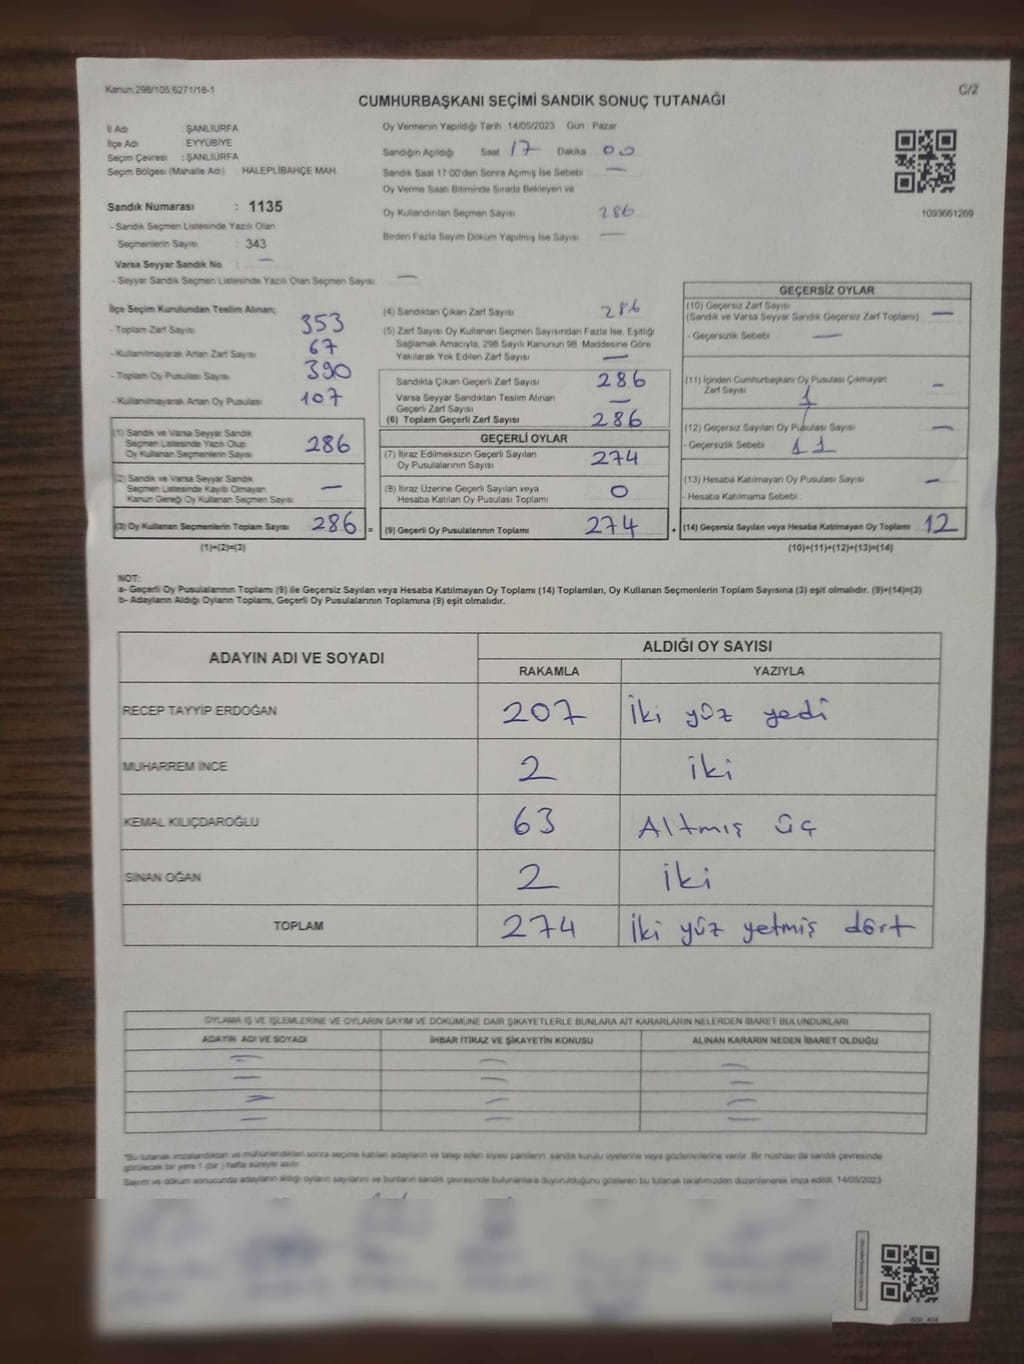 Kanun.298/105;6271/18-1
C/2
CUMHURBAŞKANI SEÇİMİ SANDIK SONUÇ TUTANAĞI
İl Adı : ŞANLIURFA
İlçe Adı EYYÜBİYE
Seçim Çevresi : ŞANLIURFA
Seçim Bölgesi (Mahalle Adı) HALEPLİBAHÇE MAH
Sandık Numarası : 1135
- Sandık Seçmen Listesinde Yazılı Olan
Seçmenlerin Sayısı : 343
Varsa Seyyar Sandık No : —
- Seyyar Sandık Seçmen Listesinde Yazılı Olan Seçmen Sayısı —
Oy Vermenin Yapıldığı Tarih 14/05/2023 Gün : Pazar
Sandığın Açıldığı Saat 17 Dakika 00
Sandık Saat 17:00'den Sonra Açımış İse Sebebi —
Oy Verme Saati Bitiminde Sırada Bekleyen ve
Oy Kullandırılan Seçmen Sayısı 286
Birden Fazla Sayım Döküm Yapılmış İse Sayısı —
1093661269
İlçe Seçim Kurulundan Teslim Alınan;
- Toplam Zarf Sayısı 353
- Kullanılmayarak Artan Zarf Sayısı 67
- Toplam Oy Pusulası Sayısı 390
- Kullanılmayarak Artan Oy Pusulası 107
(1) Sandık ve Varsa Seyyar Sandık
Seçmen Listesinde Yazılı Olup
Oy Kullanan Seçmenlerin Sayısı 286
(2) Sandık ve Varsa Seyyar Sandık
Seçmen Listesinde Kayıtlı Olmayan
Kanun Gereği Oy Kullanan Seçmen Sayısı —
(3) Oy Kullanan Seçmenlerin Toplam Sayısı 286 =
(1)+(2)=(3)
(4) Sandıktan Çıkan Zarf Sayısı 286
(5) Zarf Sayısı Oy Kullanan Seçmen Sayısından Fazla İse, Eşitliği
Sağlamak Amacıyla, 298 Sayılı Kanunun 98. Maddesine Göre
Yakılarak Yok Edilen Zarf Sayısı —
Sandıkta Çıkan Geçerli Zarf Sayısı 286
Varsa Seyyar Sandıktan Teslim Alınan
Geçerli Zarf Sayısı —
(6) Toplam Geçerli Zarf Sayısı 286
GEÇERLİ OYLAR
(7) İtiraz Edilmeksizin Geçerli Sayılan
Oy Pusulalarının Sayısı 274
(8) İtiraz Üzerine Geçerli Sayılan veya
Hesaba Katılan Oy Pusulası Toplamı 0
(9) Geçerli Oy Pusulalarının Toplamı 274 +
GEÇERSİZ OYLAR
(10) Geçersiz Zarf Sayısı
(Sandık ve Varsa Seyyar Sandık Geçersiz Zarf Toplamı) —
- Geçersizlik Sebebi —
(11) İçinden Cumhurbaşkanı Oy Pusulası Çıkmayan
Zarf Sayısı —
1
(12) Geçersiz Sayılan Oy Pusulası Sayısı —
- Geçersizlik Sebebi 11
(13) Hesaba Katılmayan Oy Pusulası Sayısı —
- Hesaba Katılmama Sebebi
(14) Geçersiz Sayılan veya Hesaba Katılmayan Oy Toplamı 12
(10)+(11)+(12)+(13)=(14)
NOT:
a- Geçerli Oy Pusulalarının Toplamı (9) ile Geçersiz Sayılan veya Hesaba Katılmayan Oy Toplamı (14) Toplamları, Oy Kullanan Seçmenlerin Toplam Sayısına (3) eşit olmalıdır. (9)+(14)=(3)
b- Adayların Aldığı Oyların Toplamı, Geçerli Oy Pusulalarının Toplamına (9) eşit olmalıdır.
ADAYIN ADI VE SOYADI ALDIĞI OY SAYISI
RAKAMLA YAZIYLA
RECEP TAYYİP ERDOĞAN 207 İki yüz yedi
MUHARREM İNCE 2 iki
KEMAL KILIÇDAROĞLU 63 Altmış üç
SİNAN OĞAN 2 iki
TOPLAM 274 İki yüz yetmiş dört
OYLAMA İŞ VE İŞLEMLERİNE VE OYLARIN SAYIM VE DÖKÜMÜNE DAİR ŞİKAYETLERLE BUNLARA AİT KARARLARIN NELERDEN İBARET BULUNDUKLARI
ADAYIN ADI VE SOYADI İHBAR İTİRAZ VE ŞİKAYETİN KONUSU ALINAN KARARIN NEDEN İBARET OLDUĞU
— — —
— — —
— — —
— — —
*Bu tutanak imzalandıktan ve mühürlendikten sonra seçime katılan adayların ve talep eden siyasi partilerin sandık kurulu üyelerine veya gözlemcilerine verilir. Bir nüshası da sandık çevresinde
görülecek bir yere 1 (bir ) hafta süreyle asılır.
Sayım ve döküm sonucunda adayların aldığı oyların sayılarını ve bunların sandık çevresinde bulunanlara duyurulduğunu gösteren bu tutanak tarafımızdan düzenlenerek imza edildi. 14/05/2023